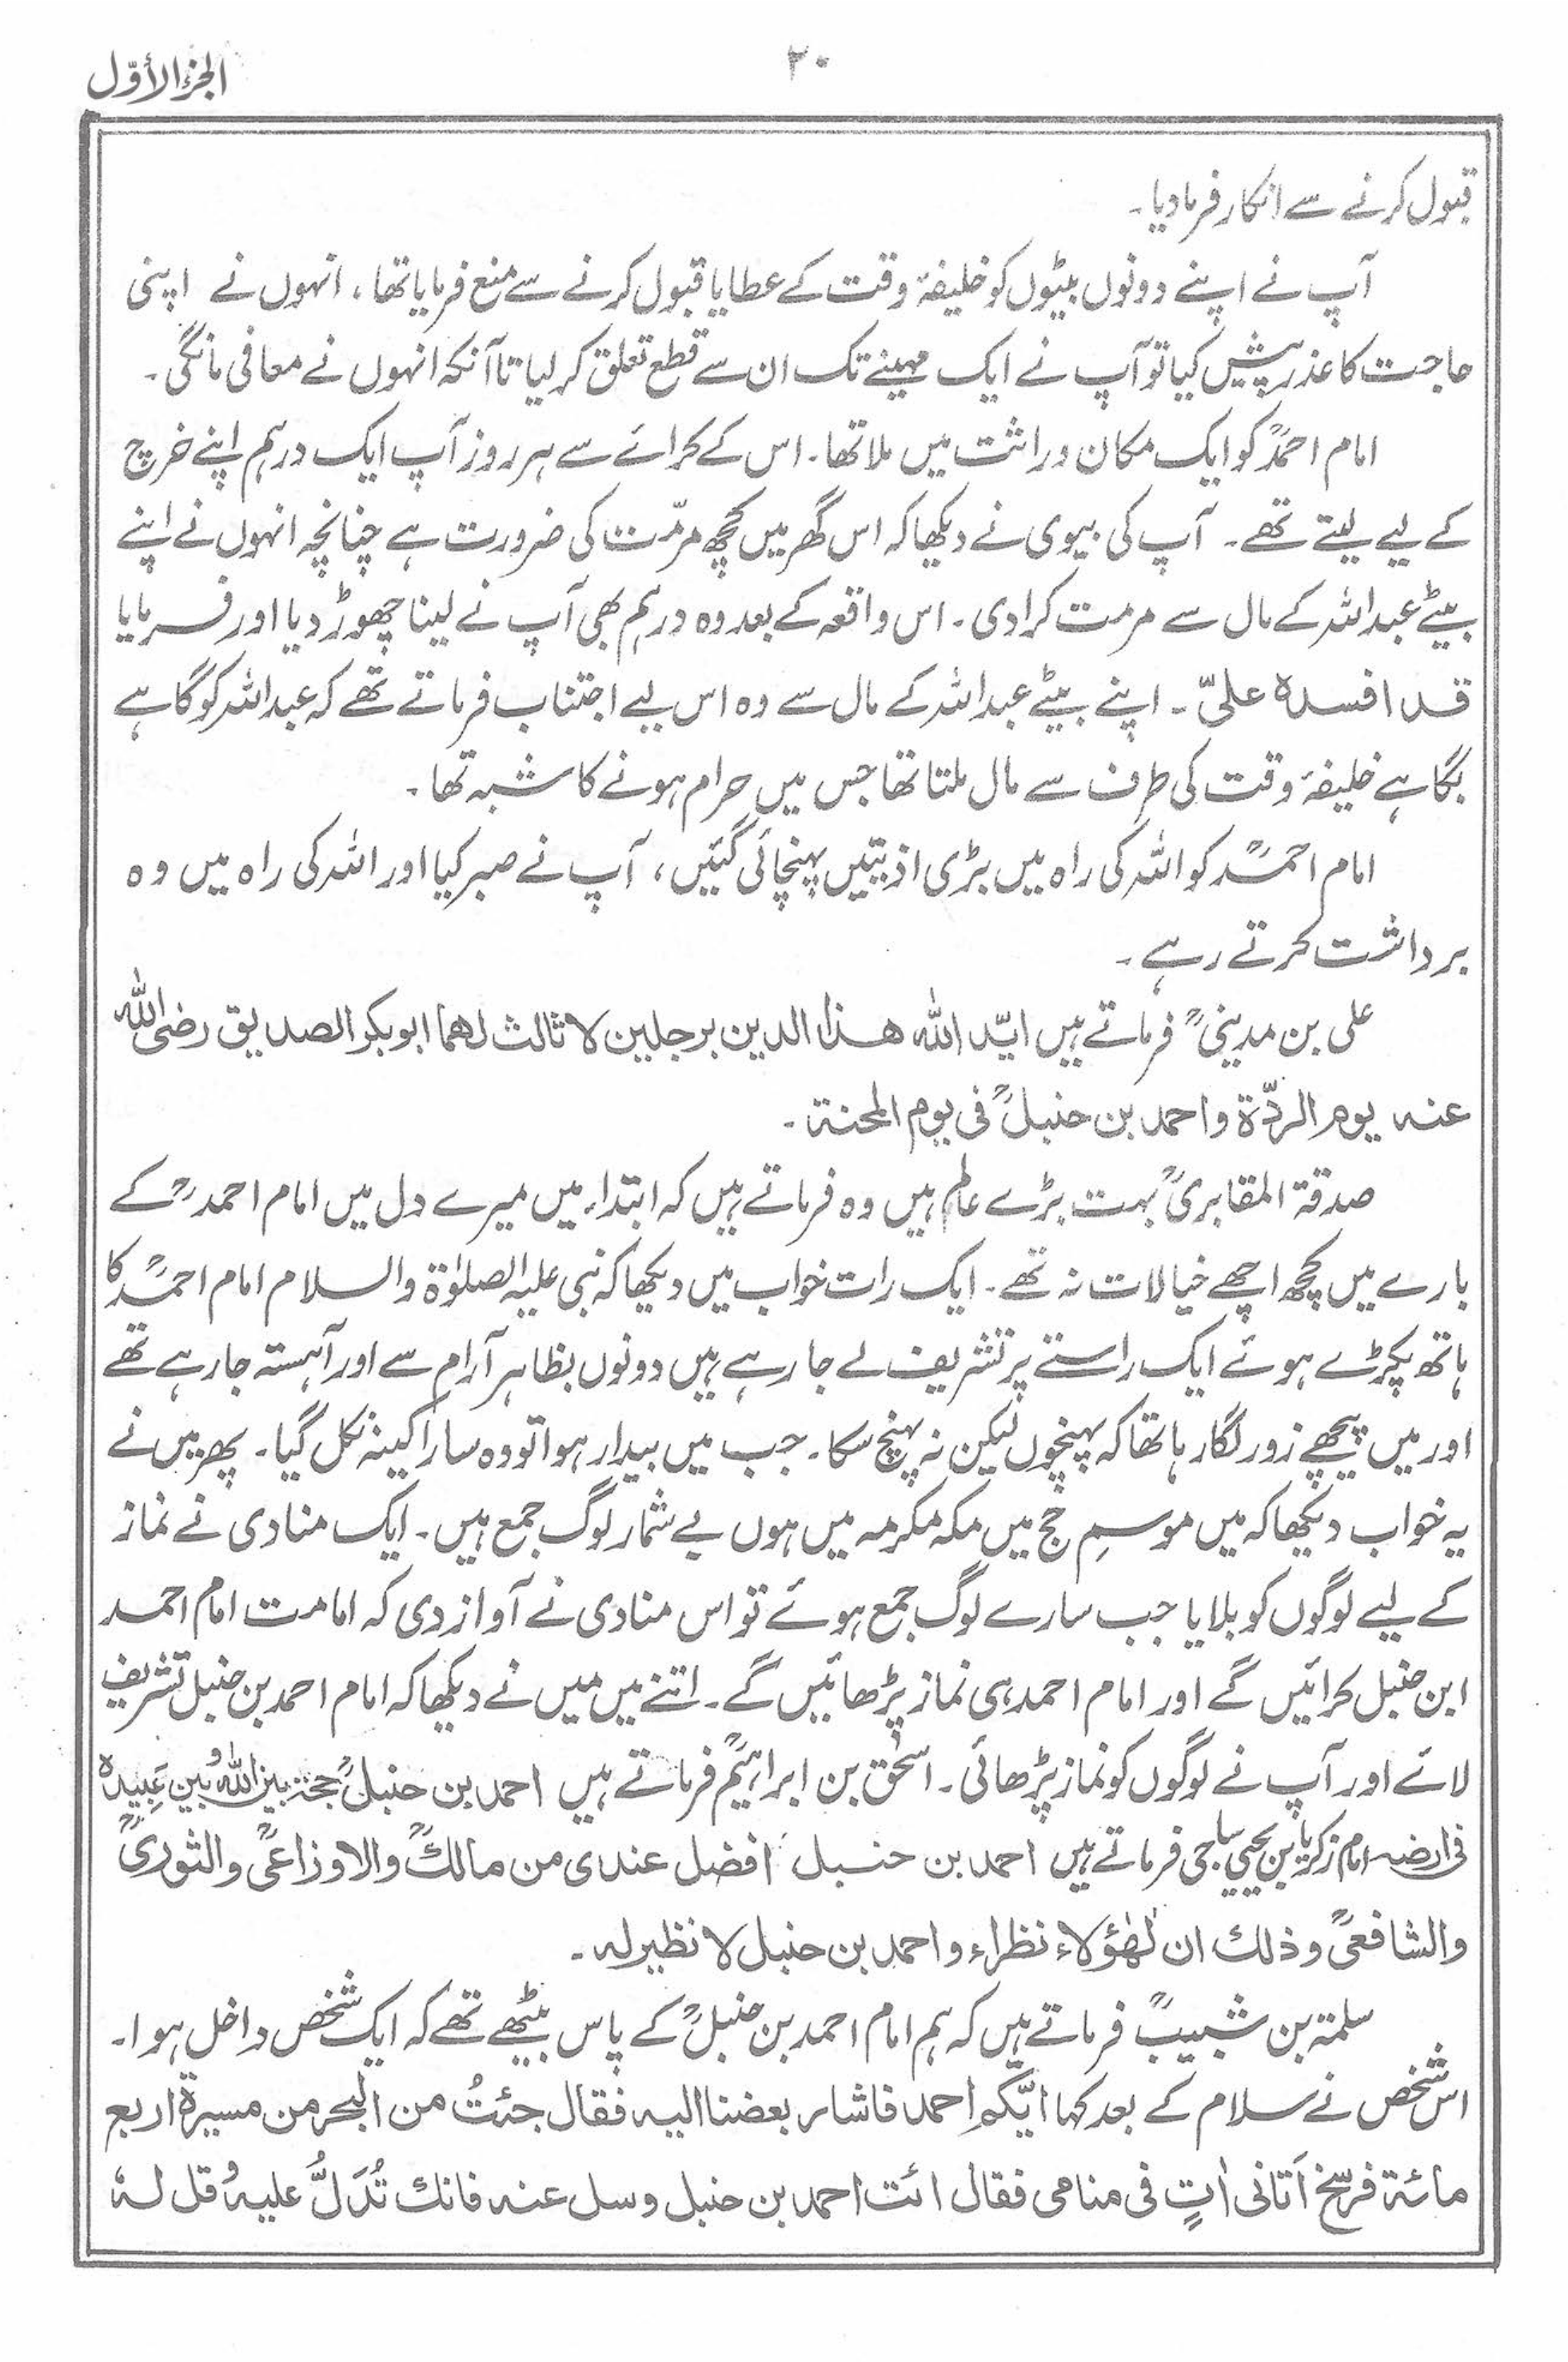 الجزء الأوّل
۲۰
قبول کرنے سے انکار فرمادیا۔
آپ نے اپنے دونوں بیٹوں کو خلیفۂ وقت کے عطایا قبول کرنے سے منع فرمایا تھا، انہوں نے اپنی
حاجت کا عذر پیش کیا تو آپ نے ایک مہینے تک ان سے قطع تعلق کر لیا تا آنکہ انہوں نے معافی مانگی۔
امام احمدؒ کو ایک مکان وراثت میں ملا تھا۔ اس کے کرائے سے ہر روز آپ ایک درہم اپنے خرچ
کے لیے لیتے تھے۔ آپ کی بیوی نے دیکھا کہ اس گھر میں کچھ مرمّت کی ضرورت ہے چنانچہ انہوں نے اپنے
بیٹے عبداللہ کے مال سے مرمت کرادی۔ اس واقعہ کے بعد وہ درہم بھی آپ نے لینا چھوڑ دیا اور فرمایا
قد افسدہ علیّ۔ اپنے بیٹے عبداللہ کے مال سے وہ اس لیے اجتناب فرماتے تھے کہ عبداللہ کو گاہے
بگاہے خلیفۂ وقت کی طرف سے مال ملتا تھا جس میں حرام ہونے کا شبہ تھا۔
امام احمدؒ کو اللہ کی راہ میں بڑی اذیتیں پہنچائی گئیں، آپ نے صبر کیا اور اللہ کی راہ میں وہ
برداشت کرتے رہے۔
علی بن مدینیؒ فرماتے ہیں ایّد اللہ ھذا الدین برجلین لا ثالث لھما ابوبکر الصدیق رضی اللہ
عنہ یوم الردّة واحمد بن حنبلؒ فی یوم المحنة۔
صدقة المقابریؒ بہت بڑے عالم ہیں وہ فرماتے ہیں کہ ابتداء میں میرے دل میں امام احمدؒ کے
بارے میں کچھ اچھے خیالات نہ تھے۔ ایک رات خواب میں دیکھا کہ نبی علیہ الصلوٰة والسلام امام احمدؒ کا
ہاتھ پکڑے ہوئے ایک راستے پر تشریف لے جا رہے ہیں دونوں بظاہر آرام سے اور آہستہ جا رہے تھے
اور میں پیچھے زور لگا رہا تھا کہ پہنچوں لیکن نہ پہنچ سکا۔ جب میں بیدار ہوا تو وہ سارا کینہ نکل گیا۔ پھر میں نے
یہ خواب دیکھا کہ میں موسمِ حج میں مکہ مکرمہ میں ہوں بے شمار لوگ جمع ہیں۔ ایک منادی نے نماز
کے لیے لوگوں کو بلایا جب سارے لوگ جمع ہوئے تو اس منادی نے آواز دی کہ امامت امام احمد
ابن حنبل کرائیں گے اور امام احمد ہی نماز پڑھائیں گے۔ اتنے میں میں نے دیکھا کہ امام احمد بن حنبل تشریف
لائے اور آپ نے لوگوں کو نماز پڑھائی۔ اسحٰق بن ابراہیمؒ فرماتے ہیں احمد بن حنبلؒ حجة بین اللہ وبین عبیدہ
فی ارضہ امام زکریا بن یحیی ساجی فرماتے ہیں احمد بن حنبل افضل عندی من مالكؒ والاوزاعیؒ والثوریؒ
والشافعیؒ وذلك ان لھٰؤلاء نظراء واحمد بن حنبل لا نظیر لہ۔
سلمة بن شبیبؒ فرماتے ہیں کہ ہم امام احمد بن حنبلؒ کے پاس بیٹھے تھے کہ ایک شخص داخل ہوا۔
اس شخص نے سلام کے بعد کہا ایّکم احمد فاشار بعضنا الیہ فقال جئتُ من البحر من مسیرة اربع
مائة فرسخ اَتانی اٰتٍ فی منامی فقال ائت احمد بن حنبل وسل عنہ فانك تُدَلُّ علیہ وقل لہٗ